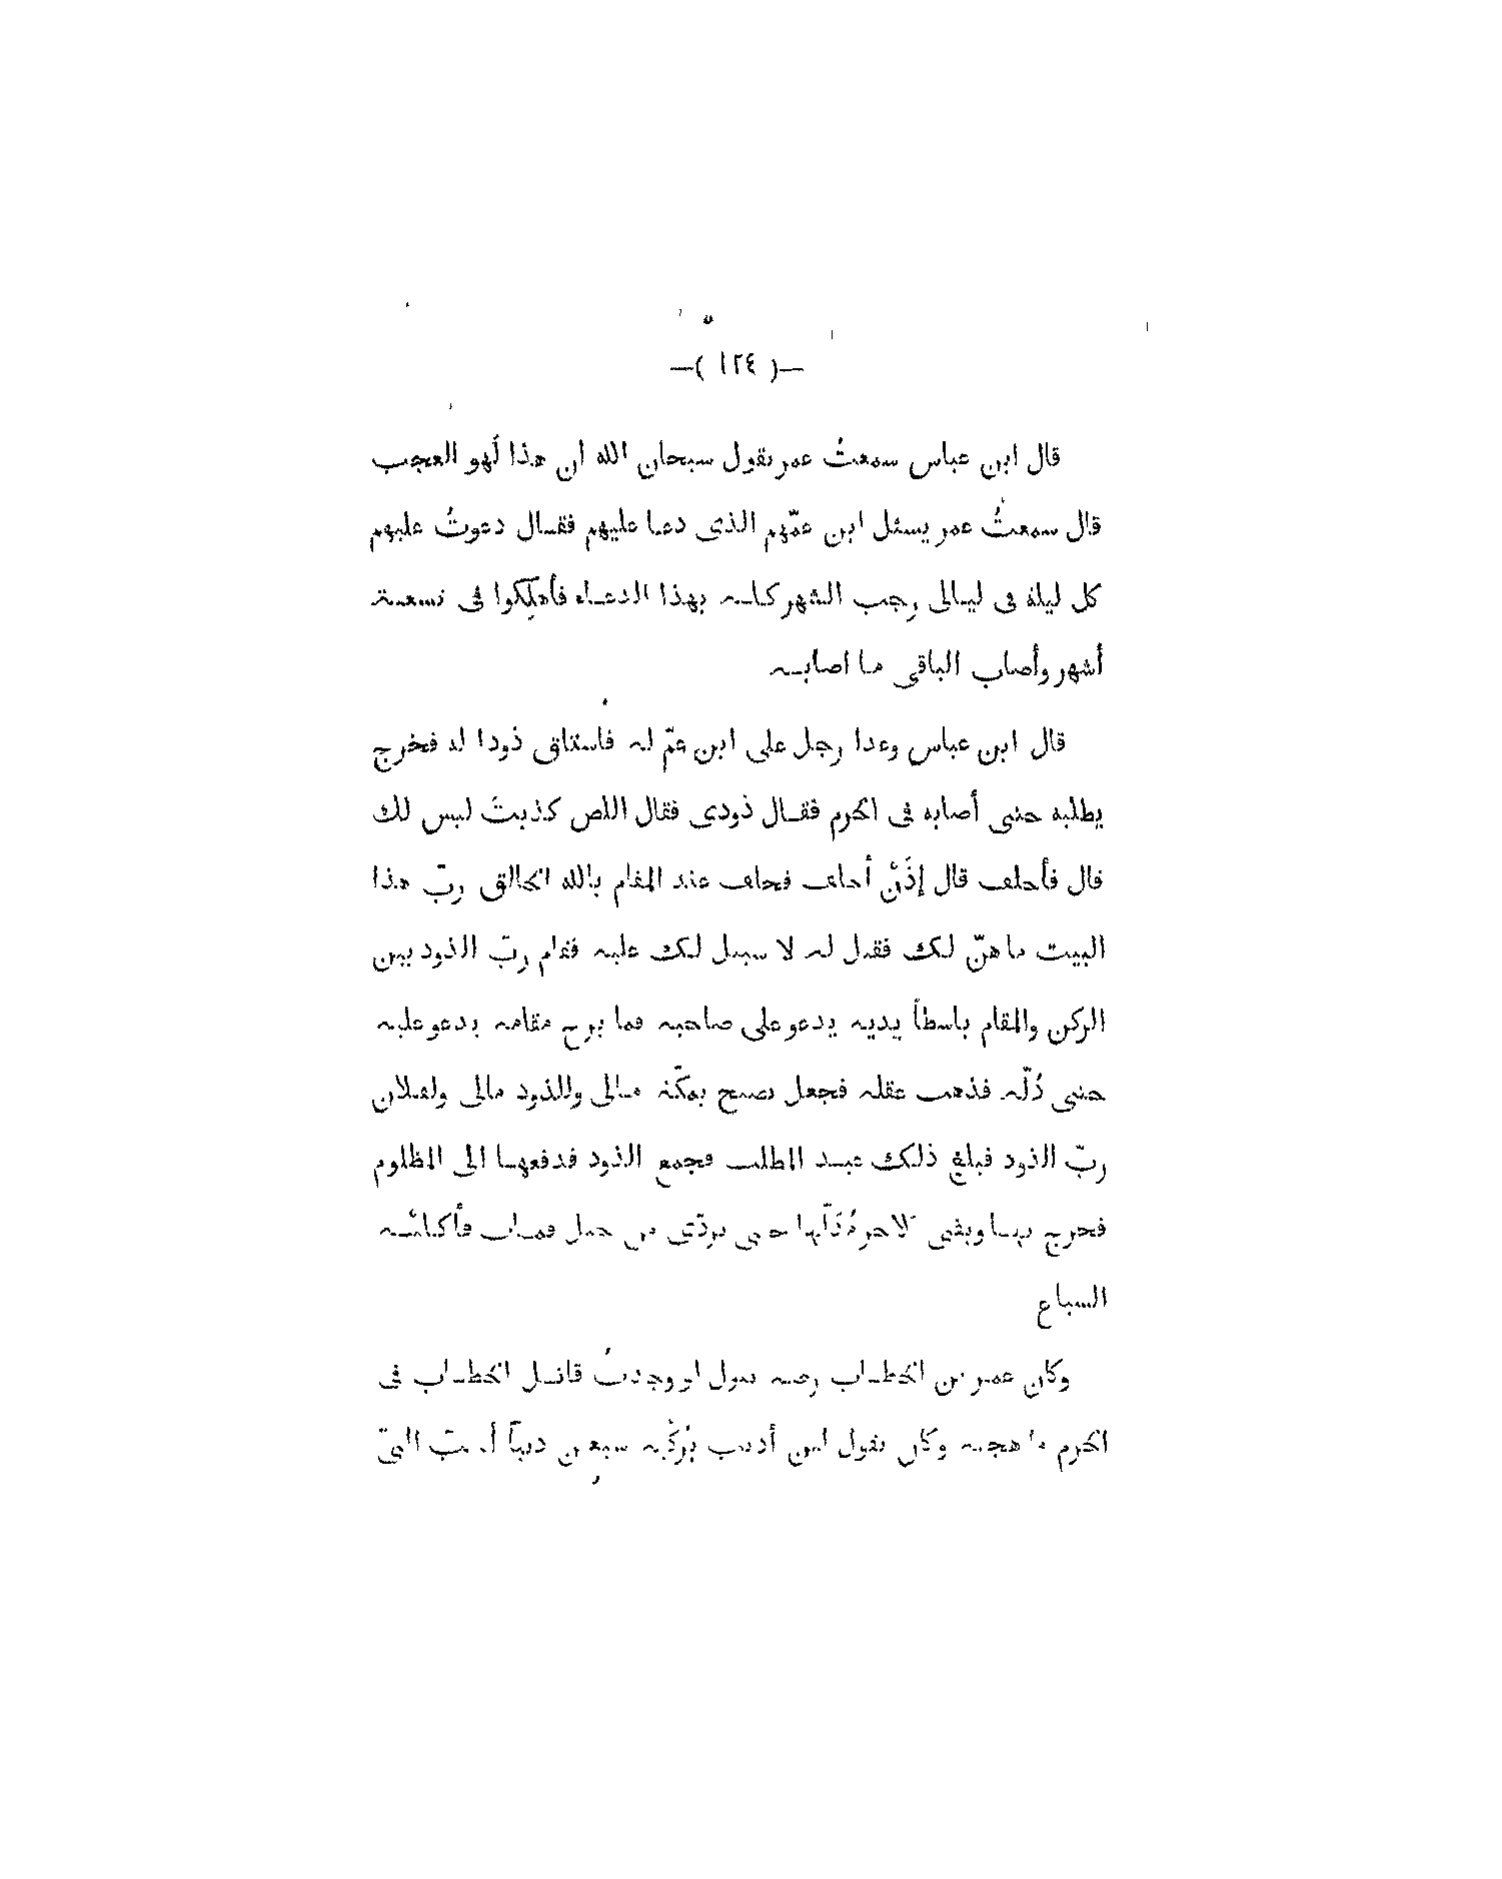 —( ١٢٤ )—
قال ابن عباس سمعتُ عمر يقول سبحان الله ان هذا لَهو العجب
قال سمعتُ عمر يسئل ابن عمّهم الذى دعا عليهم فقال دعوتُ عليهم
كل ليلة فى ليالى رجب الشهر كله بهذا الدعاء فأُهلِكوا فى تسعة
أشهر وأصاب الباقى ما اصابه
قال ابن عباس وعدا رجل على ابن عمّ له فاستاق ذودا له فخرج
يطلبه حتى أصابه فى الحرم فقال ذودى فقال اللص كذبتَ ليس لك
قال فأحلف قال إذَنْ أحلف فحلف عند المقام بالله الخالق ربّ هذا
البيت ما هنّ لك فقيل له لا سبيل لك عليه فقام ربّ الذود بين
الركن والمقام باسطاً يديه يدعو على صاحبه فما برح مقامه يدعو عليه
حتى دُلّه فذهب عقله فجعل يصيح بمكّة مالى وللذود مالى ولفلان
ربّ الذود فبلغ ذلك عبد المطلب فجمع الذود فدفعها الى المظلوم
فخرج بها وبقى حتى تردّى من جبل فمات فأكلتْه
السباع
وكان عمر بن الخطاب رضه يقول لو وجدتُ قاتل الخطاب فى
الحرم ما هجته وكان يقول لئن أذنب بُركْبه سبعين ذنباً